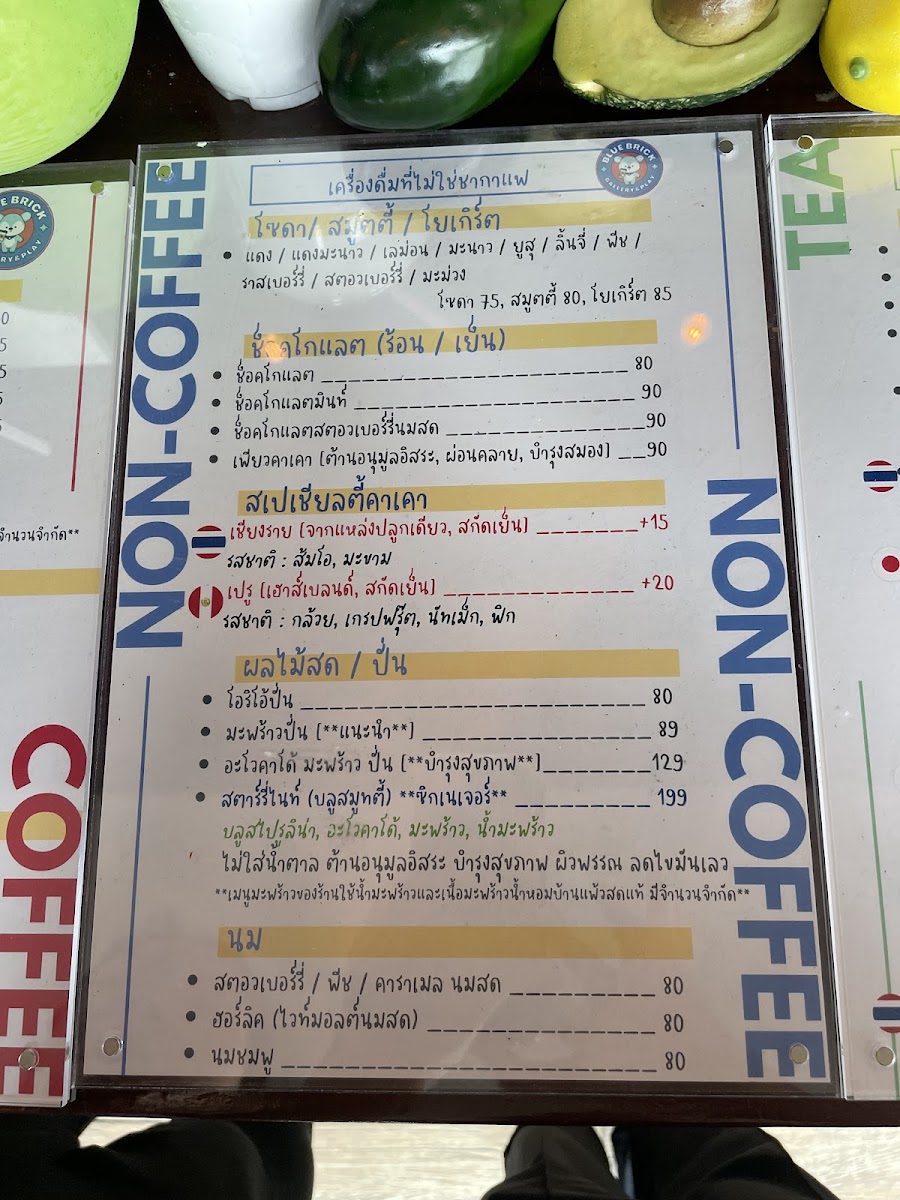 BLUE BRICK
GALLERY & PLAY
NON-COFFEE
เครื่องดื่มที่ไม่ใช่ชากาแฟ
โซดา/ สมูตตี้ / โยเกิร์ต
แดง / แดงมะนาว / เลม่อน / มะนาว / ยูสุ / ลิ้นจี่ / พีช /
ราสเบอร์รี่ / สตอวเบอร์รี่ / มะม่วง
โซดา 75, สมูตตี้ 80, โยเกิร์ต 85
ช็อคโกแลต (ร้อน / เย็น)
ช็อคโกแลต 80
ช็อคโกแลตมินท์ 90
ช็อคโกแลตสตอวเบอร์รี่นมสด 90
เพียวคาเคา [ต้านอนุมูลอิสระ, ผ่อนคลาย, บำรุงสมอง] 90
สเปเชียลตี้คาเคา
เชียงราย [จากแหล่งปลูกเดียว, สกัดเย็น] +15
รสชาติ : ส้มโอ, มะขาม
เปรู [เฮาส์เบลนด์, สกัดเย็น] +20
รสชาติ : กล้วย, เกรปฟรุ๊ต, นัทเม็ก, ฟิก
ผลไม้สด / ปั่น
โอริโอ้ปั่น 80
มะพร้าวปั่น [**แนะนำ**] 89
อะโวคาโด้ มะพร้าว ปั่น [**บำรุงสุขภาพ**] 129
สตาร์รี่ไนท์ (บลูสมูทตี้) **ซิกเนเจอร์** 199
บลูสไปรูลิน่า, อะโวคาโด้, มะพร้าว, น้ำมะพร้าว
ไม่ใส่น้ำตาล ต้านอนุมูลอิสระ บำรุงสุขภาพ ผิวพรรณ ลดไขมันเลว
**เมนูมะพร้าวของร้านใช้น้ำมะพร้าวและเนื้อมะพร้าวน้ำหอมบ้านแพ้วสดแท้ มีจำนวนจำกัด**
นม
สตอวเบอร์รี่ / พีช / คาราเมล นมสด 80
ฮอร์ลิค (ไวท์มอลต์นมสด) 80
นมชมพู 80
NON-COFFEE
จำนวนจำกัด**
COFFEE
TEA